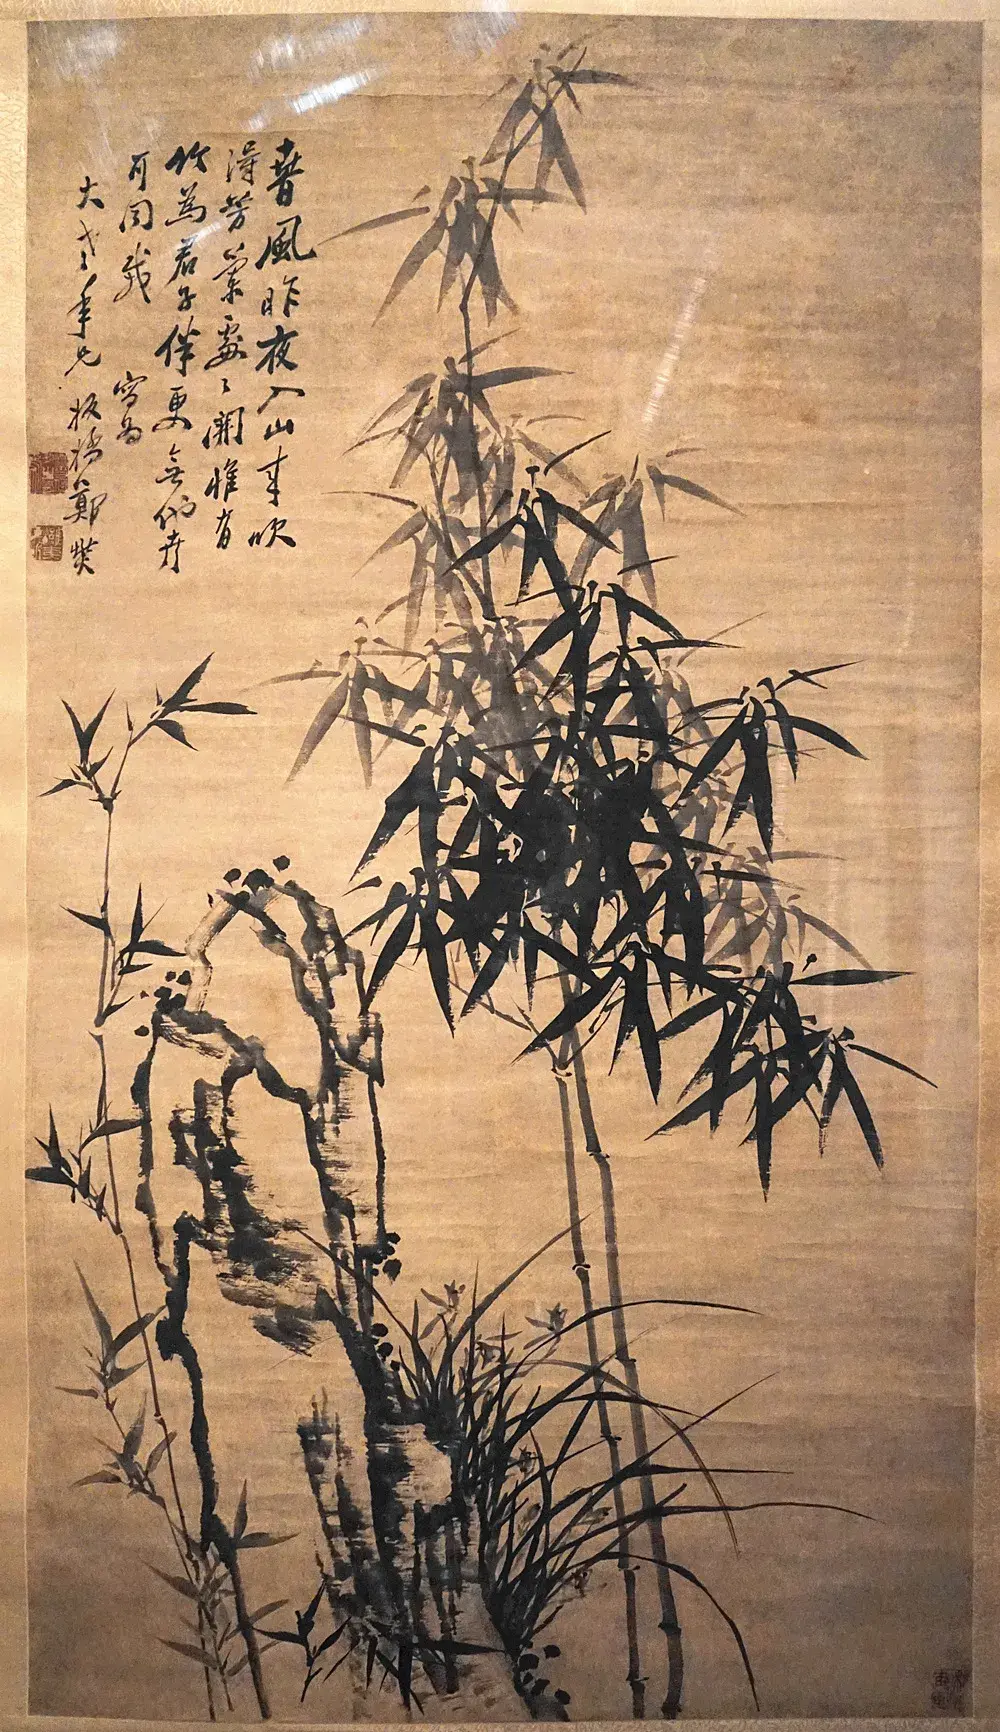 春風昨夜入山來吹
得芳蘭處〻開惟有
竹為君子伴更無他卉
可同栽 寫為
大年兄 板橋鄭燮